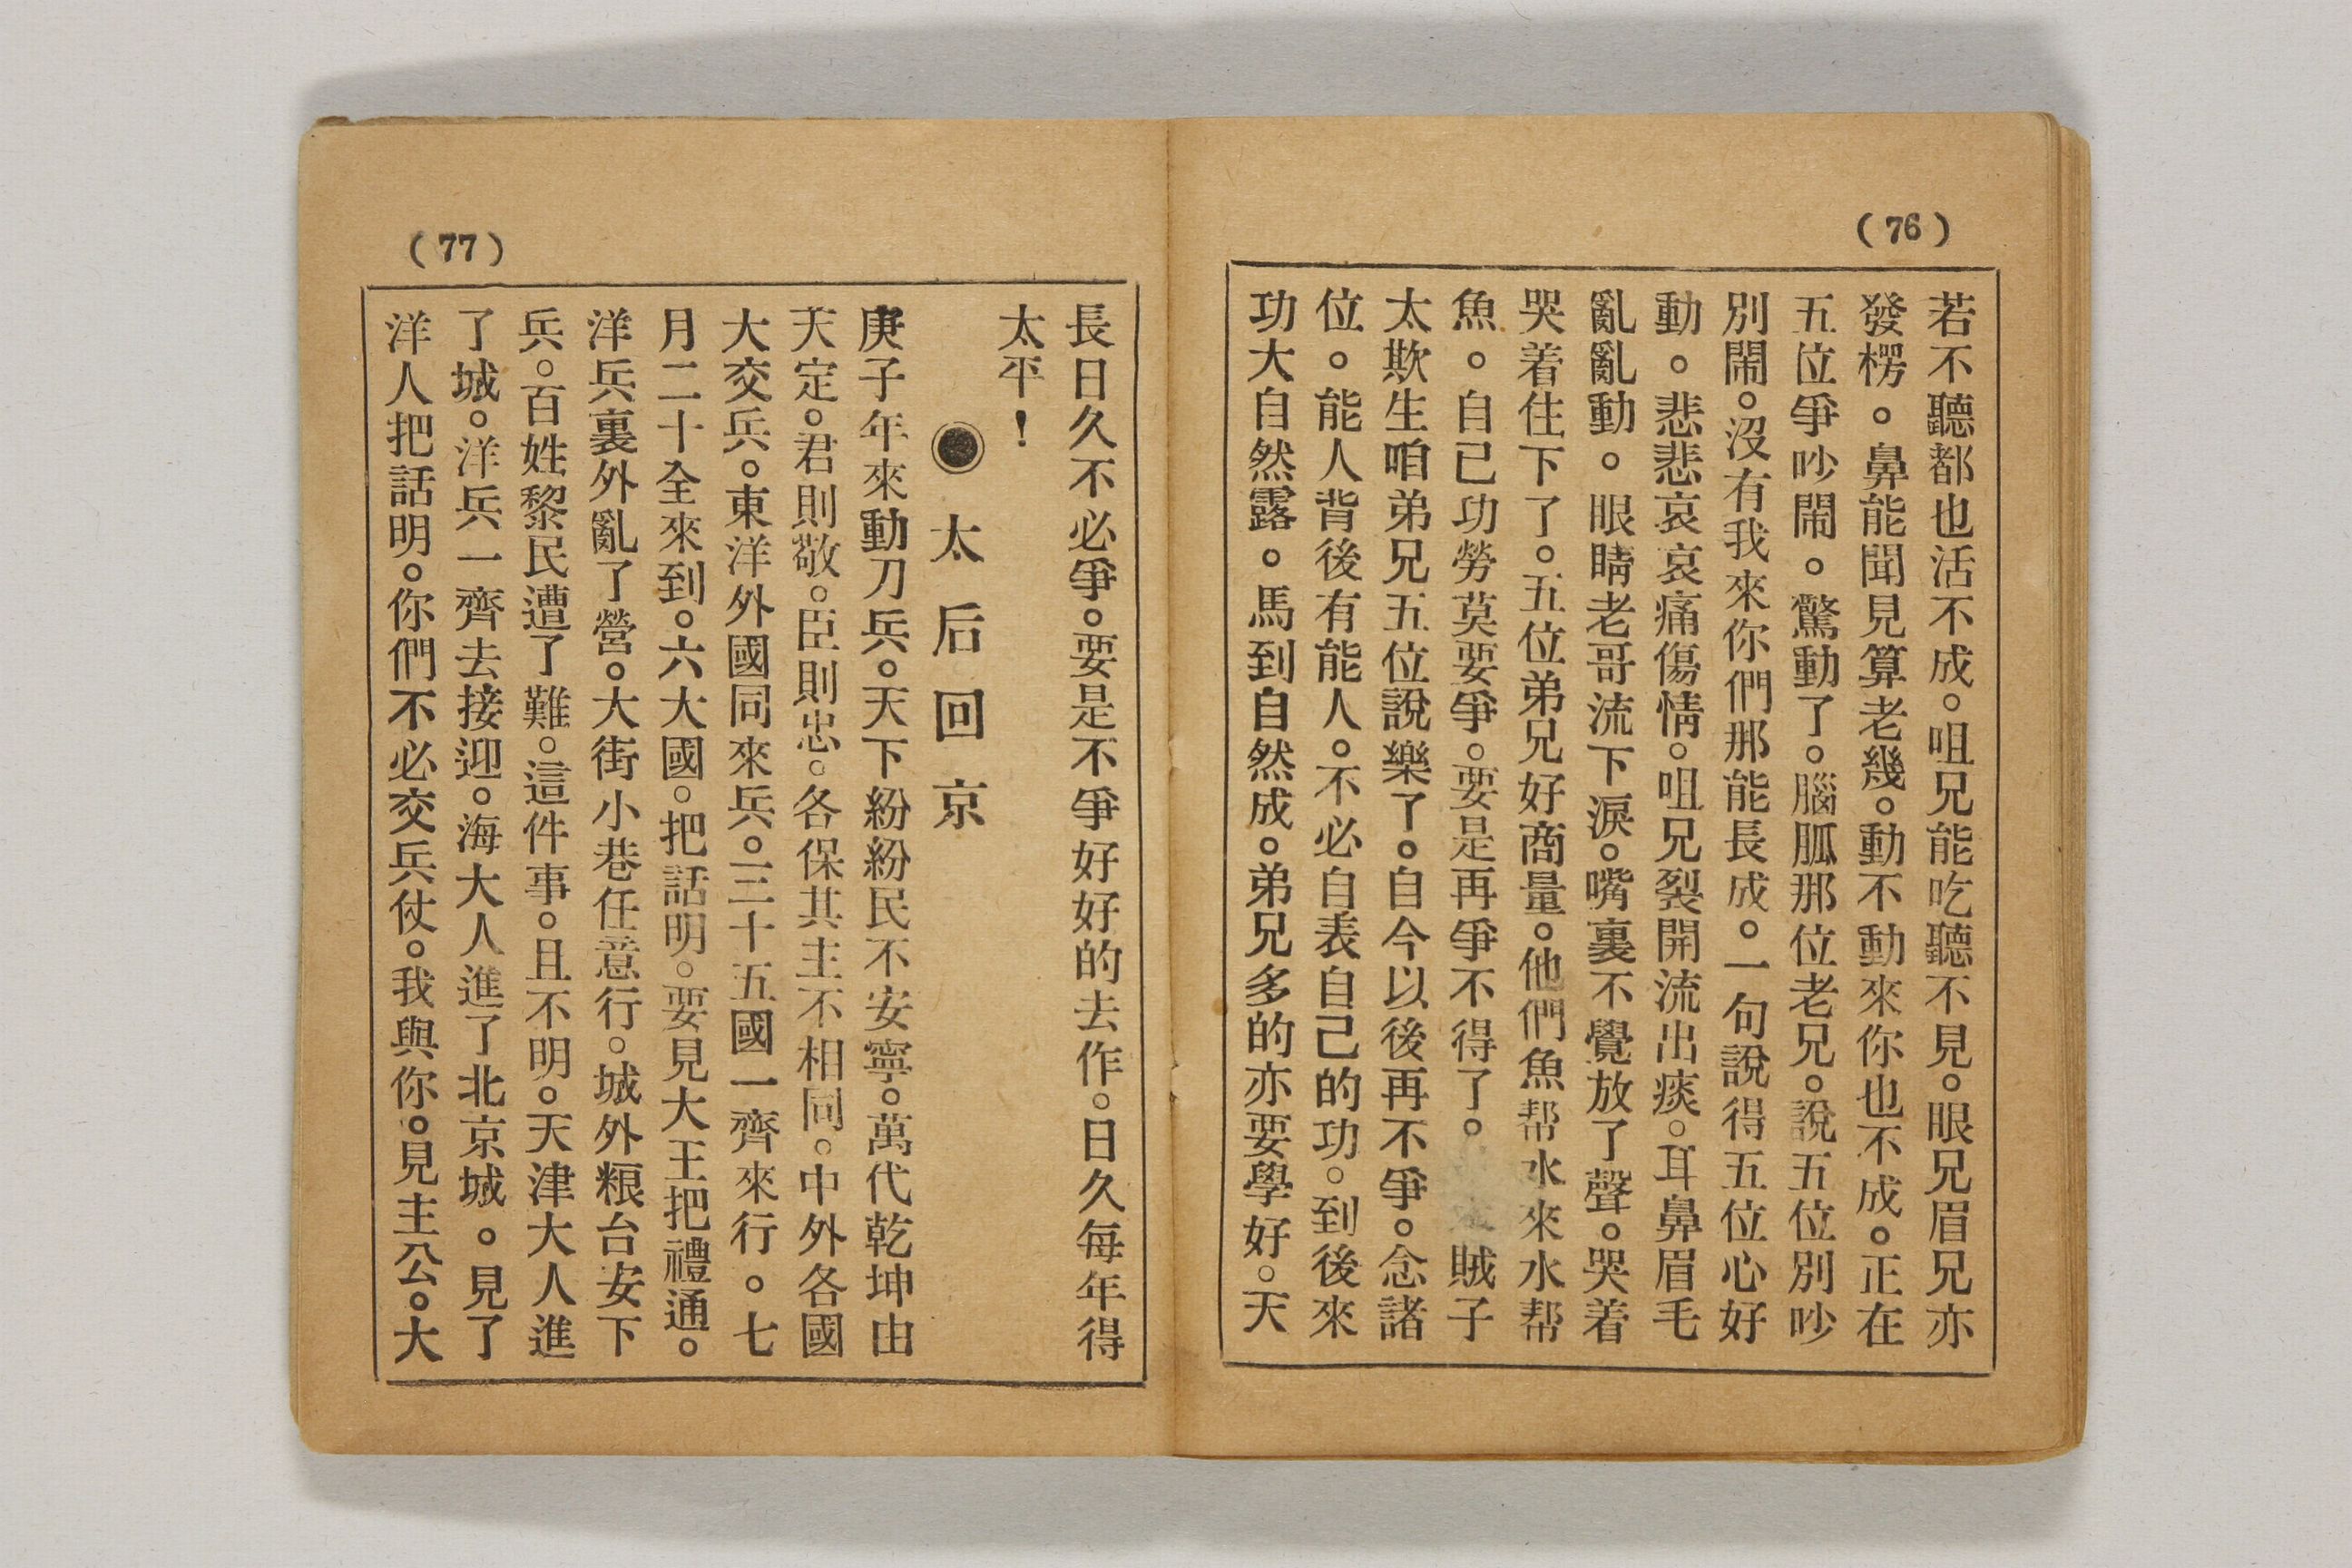 (76)
若不聽都也活不成。咀兄能吃聽不見。眼兄眉兄亦
發楞。鼻能聞見算老幾。動不動來你也不成。正在
五位爭吵鬧。驚動了。腦胍那位老兄。說五位別吵
別鬧。沒有我來你們那能長成。一句說得五位心好
動。悲悲哀哀痛傷情。咀兄裂開流出痰。耳鼻眉毛
亂亂動。眼睛老哥流下淚。嘴裏不覺放了聲。哭着
哭着住下了。五位弟兄好商量。他們魚帮水來水帮
魚。自已功勞莫要爭。要是再爭不得了。賊子
太欺生咱弟兄五位說樂了。自今以後再不爭。念諸
位。能人背後有能人。不必自表自己的功。到後來
功大自然露。馬到自然成。弟兄多的亦要學好。天
(77)
長日久不必爭。要是不爭好好的去作。日久每年得
太平！
◉太后回京
庚子年來動刀兵。天下紛紛民不安寧。萬代乾坤由
天定。君則敬。臣則忠。各保其主不相同。中外各國
大交兵。東洋外國同來兵。三十五國一齊來行。七
月二十全來到。六大國。把話明。要見大王把禮通。
洋兵裏外亂了營。大街小巷任意行。城外粮台安下
兵。百姓黎民遭了難。這件事。且不明。天津大人進
了城。洋兵一齊去接迎。海大人進了北京城。見了
洋人把話明。你們不必交兵仗。我與你。見主公。大